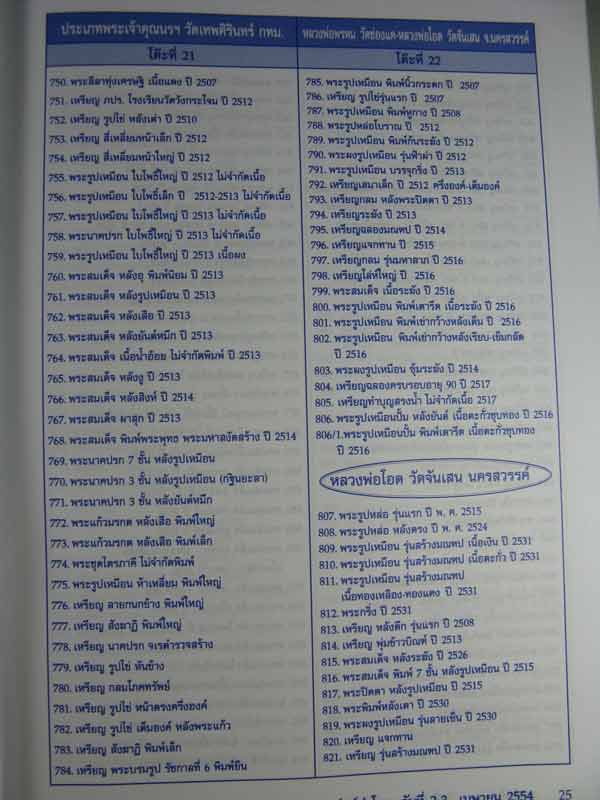 ประเภทพระเจ้าคุณนรฯ วัดเทพศิรินทร์ กทม.
โต๊ะที่ 21
750. พระลีลาทุ่งเศรษฐี เนื้อแดง ปี 2507
751. เหรียญ ภปร. โรงเรียนวัดวังกระโจม ปี 2512
752. เหรียญ รูปไข่ หลังเต่า ปี 2510
753. เหรียญ สี่เหลี่ยมหน้าเล็ก ปี 2512
754. เหรียญ สี่เหลี่ยมหน้าใหญ่ ปี 2512
755. พระรูปเหมือน ใบโพธิ์ใหญ่ ปี 2512 ไม่จำกัดเนื้อ
756. พระรูปเหมือน ใบโพธิ์เล็ก ปี 2512-2513 ไม่จำกัดเนื้อ
757. พระรูปเหมือน ใบโพธิ์ใหญ่ ปี 2513 ไม่จำกัดเนื้อ
758. พระนาคปรก ใบโพธิ์ใหญ่ ปี 2513 ไม่จำกัดเนื้อ
759. พระรูปเหมือน ใบโพธิ์ใหญ่ ปี 2513 เนื้อผง
760. พระสมเด็จ หลังอุ พิมพ์นิยม ปี 2513
761. พระสมเด็จ หลังรูปเหมือน ปี 2513
762. พระสมเด็จ หลังเสือ ปี 2513
763. พระสมเด็จ หลังยันต์หมึก ปี 2513
764. พระสมเด็จ เนื้อน้ำอ้อย ไม่จำกัดพิมพ์ ปี 2513
765. พระสมเด็จ หลังงู ปี 2513
766. พระสมเด็จ หลังสิงห์ ปี 2514
767. พระสมเด็จ ผาสุก ปี 2513
768. พระสมเด็จ พิมพ์พระพุทธ พระมหาสงัดสร้าง ปี 2514
769. พระนาคปรก 7 ชั้น หลังรูปเหมือน
770. พระนาคปรก 3 ชั้น หลังรูปเหมือน (กฐินยะลา)
771. พระนาคปรก 3 ชั้น หลังยันต์หมึก
772. พระแก้วมรกต หลังเสือ พิมพ์ใหญ่
773. พระแก้วมรกต หลังเสือ พิมพ์เล็ก
774. พระชุดไตรภาคี ไม่จำกัดพิมพ์
775. พระรูปเหมือน ห้าเหลี่ยม พิมพ์ใหญ่
776. เหรียญ ลายกนกข้าง พิมพ์ใหญ่
777. เหรียญ สังฆาฏิ พิมพ์ใหญ่
778. เหรียญ นาคปรก จเรตำรวจสร้าง
779. เหรียญ รูปไข่ หันข้าง
780. เหรียญ กลมโภคทรัพย์
781. เหรียญ รูปไข่ หน้าตรงครึ่งองค์
782. เหรียญ รูปไข่ เต็มองค์ หลังพระแก้ว
783. เหรียญ สังฆาฏิ พิมพ์เล็ก
784. เหรียญ พระบรมรูป รัชกาลที่ 6 พิมพ์ยืน
หลวงพ่อพรหม วัดช่องแค-หลวงพ่อโอด วัดจันเสน จ.นครสวรรค์
โต๊ะที่ 22
785. พระรูปเหมือน พิมพ์นิ้วกระดก ปี 2507
786. เหรียญ รูปไข่รุ่นแรก ปี 2507
787. พระรูปเหมือน พิมพ์หูกาง ปี 2508
788. พระรูปหล่อโบราณ ปี 2512
789. พระรูปเหมือน พิมพ์ก้นระฆัง ปี 2512
790. พระผงรูปเหมือน รุ่นฟ้าผ่า ปี 2512
791. พระรูปเหมือน บรรจุกริ่ง ปี 2513
792. เหรียญเสมาเล็ก ปี 2512 ครึ่งองค์-เต็มองค์
793. เหรียญกลม หลังพระปิดตา ปี 2513
794. เหรียญระฆัง ปี 2513
795. เหรียญฉลองมณฑป ปี 2514
796. เหรียญแจกทาน ปี 2515
797. เหรียญกลม รุ่นมหาลาภ ปี 2516
798. เหรียญโล่ห์ใหญ่ ปี 2516
799. พระสมเด็จ เนื้อระฆัง ปี 2516
800. พระรูปเหมือน พิมพ์เตารีด เนื้อระฆัง ปี 2516
801. พระรูปเหมือน พิมพ์เข่ากว้างหลังเต็ม ปี 2516
802. พระรูปเหมือน พิมพ์เข่ากว้างหลังเรียบ-เข็มกลัด
ปี 2516
803. พระผงรูปเหมือน ซุ้มระฆัง ปี 2514
804. เหรียญฉลองครบรอบอายุ 90 ปี 2517
805. เหรียญทำบุญสรงน้ำ ไม่จำกัดเนื้อ 2517
806. พระรูปเหมือนปั้ม หลังยันต์ เนื้อตะกั่วชุบทอง ปี 2516
806/1.พระรูปเหมือนปั้ม พิมพ์เตารีด เนื้อตะกั่วชุบทอง
ปี 2516
หลวงพ่อโอด วัดจันเสน นครสวรรค์
807. พระรูปหล่อ รุ่นแรก ปี พ. ศ. 2515
808. พระรูปหล่อ หลังตรง ปี พ. ศ 2524
809. พระรูปเหมือน รุ่นสร้างมณฑป เนื้อเงิน ปี 2531
810. พระรูปเหมือน รุ่นสร้างมณฑป เนื้อตะกั่ว ปี 2531
811. พระรูปเหมือน รุ่นสร้างมณฑป
เนื้อทองเหลือง-ทองแดง ปี 2531
812. พระกริ่ง ปี 2531
813. เหรียญ หลังตึก รุ่นแรก ปี 2508
814. เหรียญ พุ่มข้าวบิณฑ์ ปี 2513
815. พระสมเด็จ หลังระฆัง ปี 2526
816. พระสมเด็จ พิมพ์ 7 ชั้น หลังรูปเหมือน ปี 2515
817. พระปิดตา หลังรูปเหมือน ปี 2515
818. พระพิมพ์หลังเตา ปี 2530
819. พระผงรูปเหมือน รุ่นลายเซ็น ปี 2530
820. เหรียญ แจกทาน
821. เหรียญ รุ่นสร้างมณฑป ปี 2531
2-3 เมษายน 2554 25